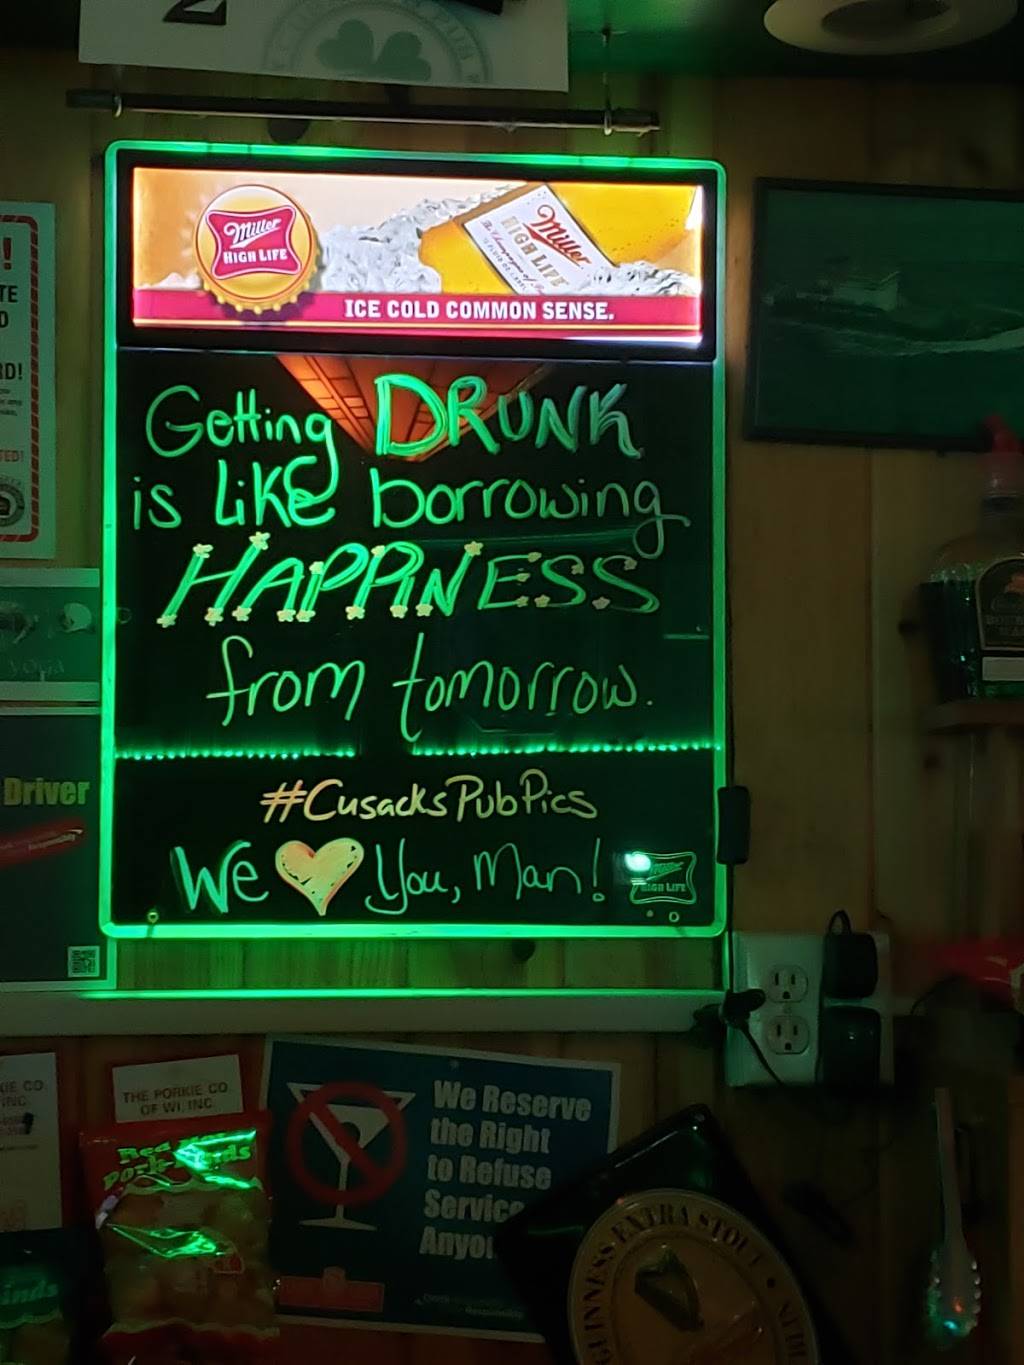 Miller
HIGH LIFE
Miller
HIGH LIFE
ICE COLD COMMON SENSE.
Getting DRUNK
is LIKE borrowing
HAPPINESS
from tomorrow.
#CusacksPubPics
We ♥ You, Man!
Miller
HIGH LIFE
Driver
YOGA
THE PORKIE CO.
OF WI, INC.
We Reserve
the Right
to Refuse
Service
GUINNESS EXTRA STOUT